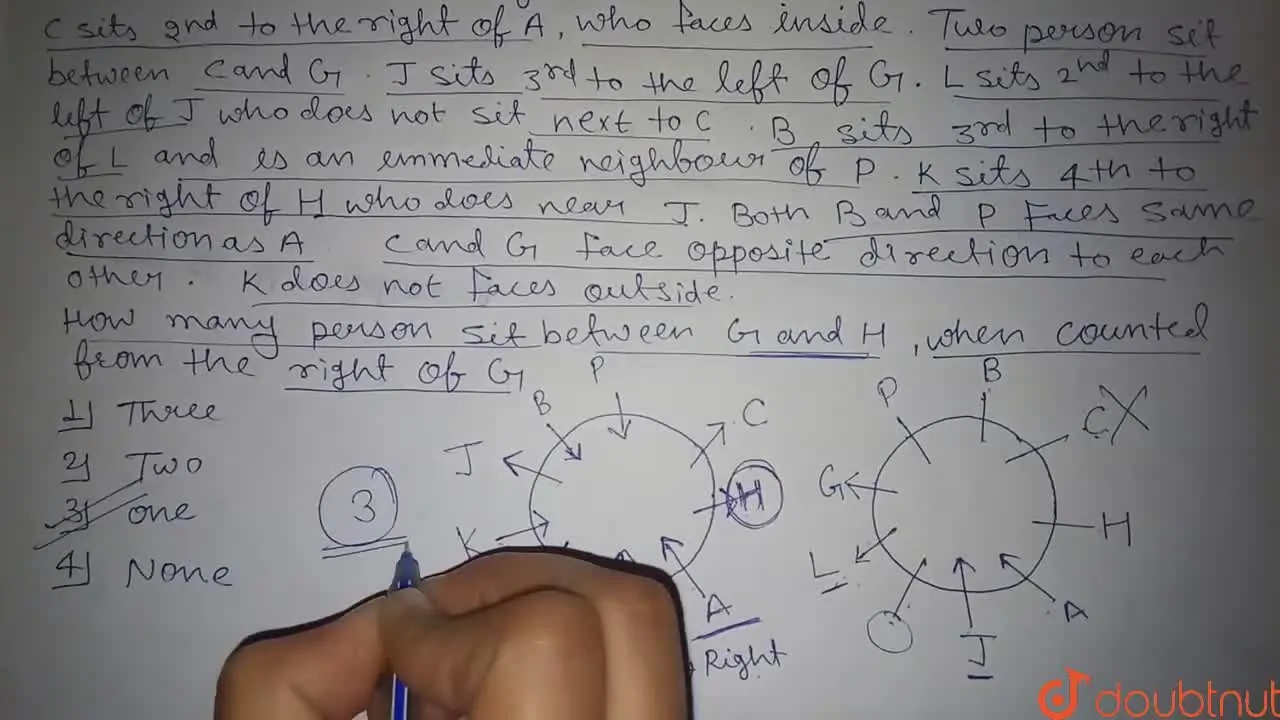 C sits 2nd to the right of A, who faces inside. Two person sit
between C and G. J sits 3rd to the left of G. L sits 2nd to the
left of J who does not sit next to C. B sits 3rd to the right
of L and is an emmediate neighbour of P. K sits 4th to
the right of H who does near J. Both B and P Faces Same
direction as A C and G face opposite direction to each
other. K does not faces outside.
How many person sit between G and H, when counted
from the right of G
1) Three
2) Two
3) one
4) None
3
P
B
C
J
H
K
A
Right
B
P
C
G
H
L
A
J
doubtnut